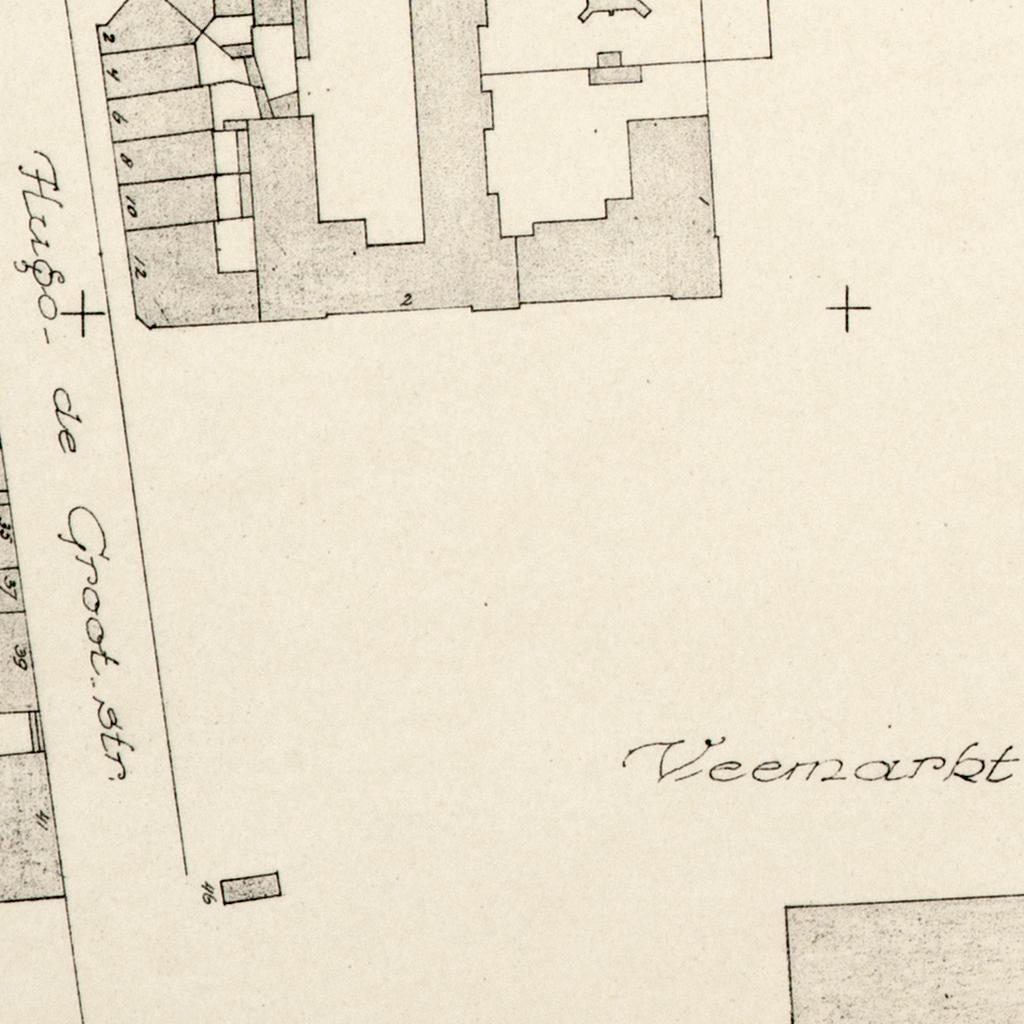 2
4
6
8
10
12
2
Hugo- de Groot-str.
35
37
39
41
46
Veemarkt